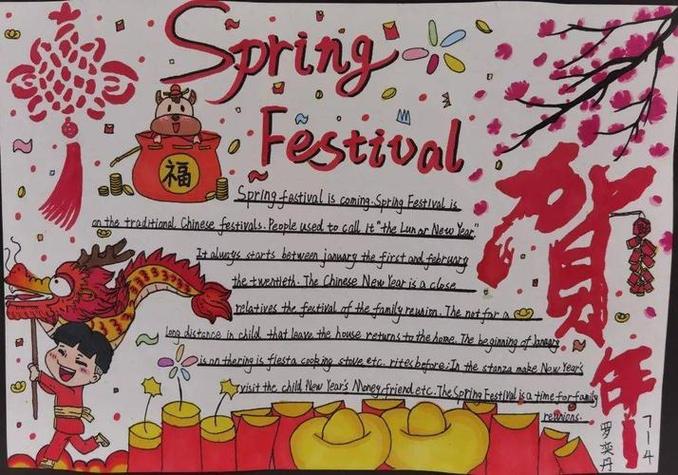 Spring
Festival
福
Spring festival is coming. Spring Festival is
on the traditional Chinese festivals. People used to call it "the Lunar New Year."
It always starts between january the first and february
the twentieth. The Chinese New Year is a close
relatives the festival of the family reunion. The not for a
Long distance in child that leave the house returns to the home. The beginning of January
is on thering is fiesta cooking stove etc. rites before: In the stanza make New Year's
visit the child New Year's Money, friend etc. The Spring Festival is a time for family
reunions.
贺年
7-14
罗奕丹